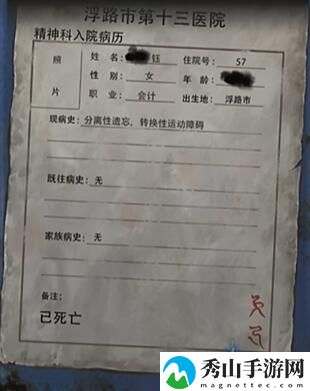 浮路市第十三医院
精神科入院病历
照片
姓名: 钰 住院号: 57
性别: 女 年龄:
职业: 会计 出生地: 浮路市
现病史: 分离性遗忘，转换性运动障碍
既往病史: 无
家族病史: 无
备注:
已死亡
秀山手游网
magnettec.com